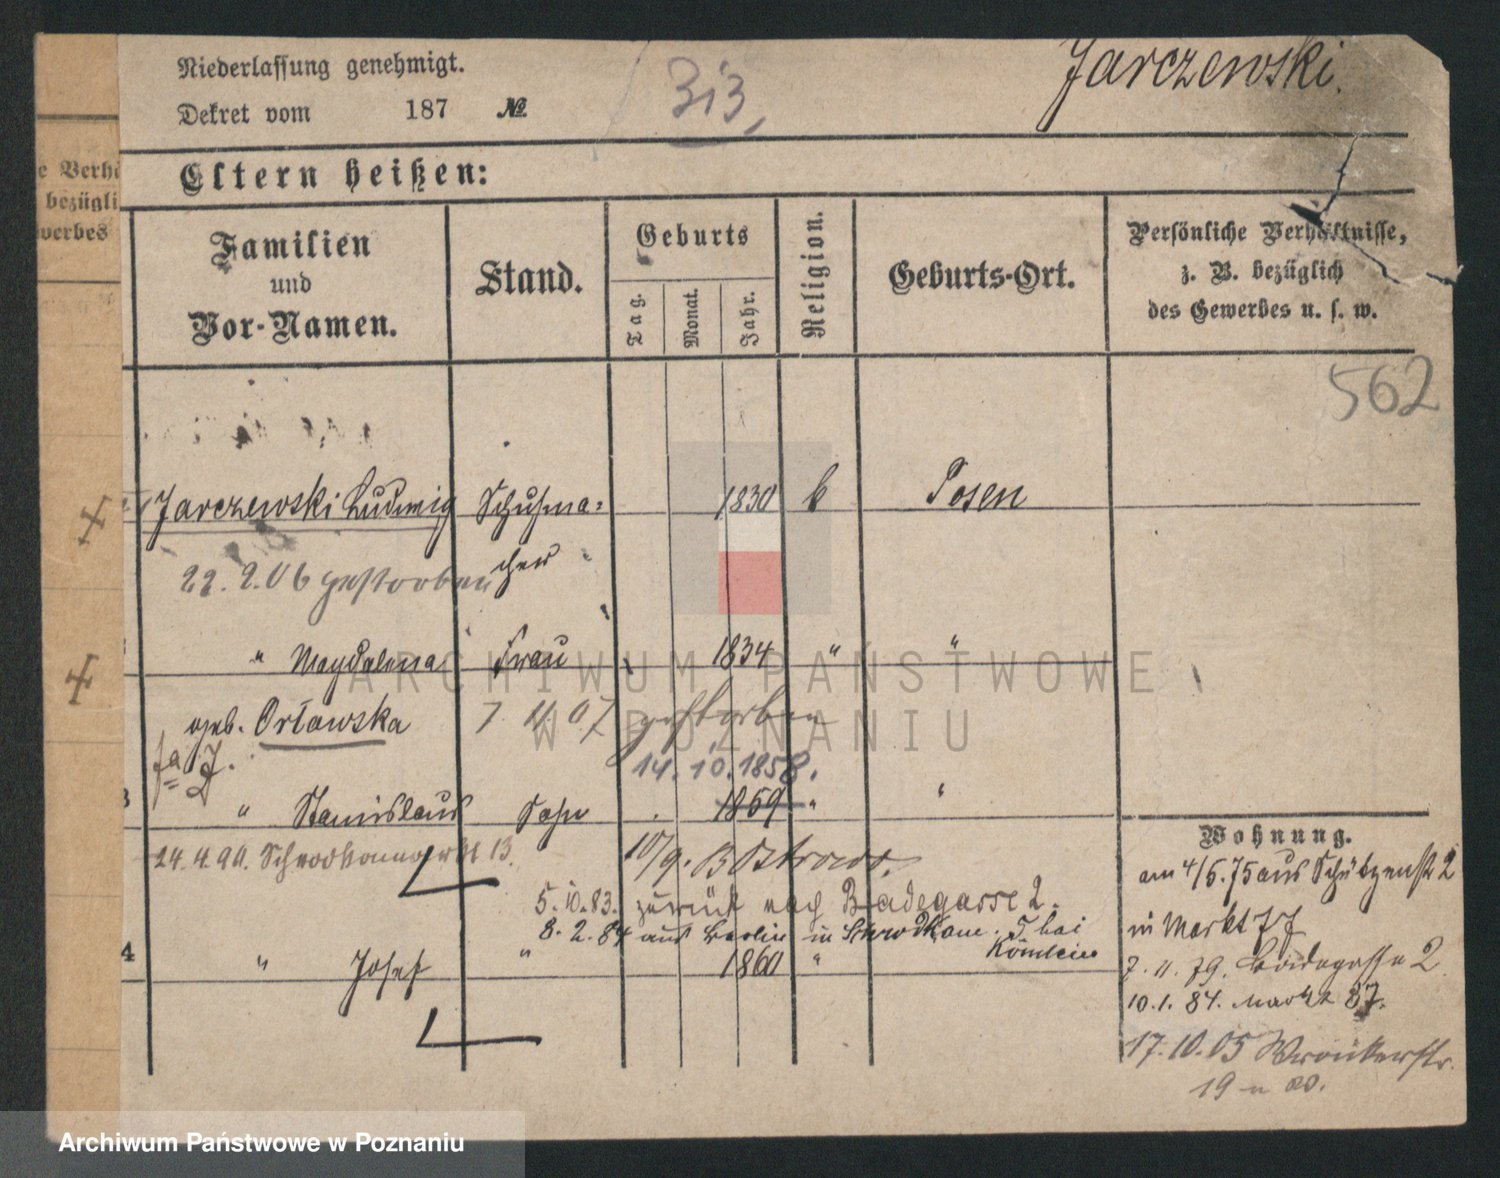 Niederlassung genehmigt.
Dekret vom 187 №
313,
Jarczewski.
Eltern heißen:
e Verhä
bezügli
werbes
Familien
und
Vor-Namen.
Stand.
Geburts
Tag.
Monat.
Jahr.
Religion.
Geburts-Ort.
Persönliche Verhältnisse,
z. B. bezüglich
des Gewerbes u. s. w.
562
Jarczewski Ludwig Schuhma= 1830 k Posen
cher
22.2.06 gestorben
" Magdalena Frau 1834 " "
geb. Orławska 7. 11. 07 gestorben
14. 10. 1858.
3 " Stanislaus Sohn 1859 " "
24.4.90. 13. 10/9. Ostrowo.
5.10.83. zurück nach Badegasse 2.
8. 2. 84 aus Berlin in 5 bei
4 " Josef " 1860 "
Wohnung.
am 4/5.75 aus Schützenst 2
in Markt 77
7. 11. 79. Badegasse 2
10.1. 84. Markt 87.
17.10.05 Wronkerstr.
19 u 20.
ARCHIWUM PAŃSTWOWE
W POZNANIU
Archiwum Państwowe w Poznaniu